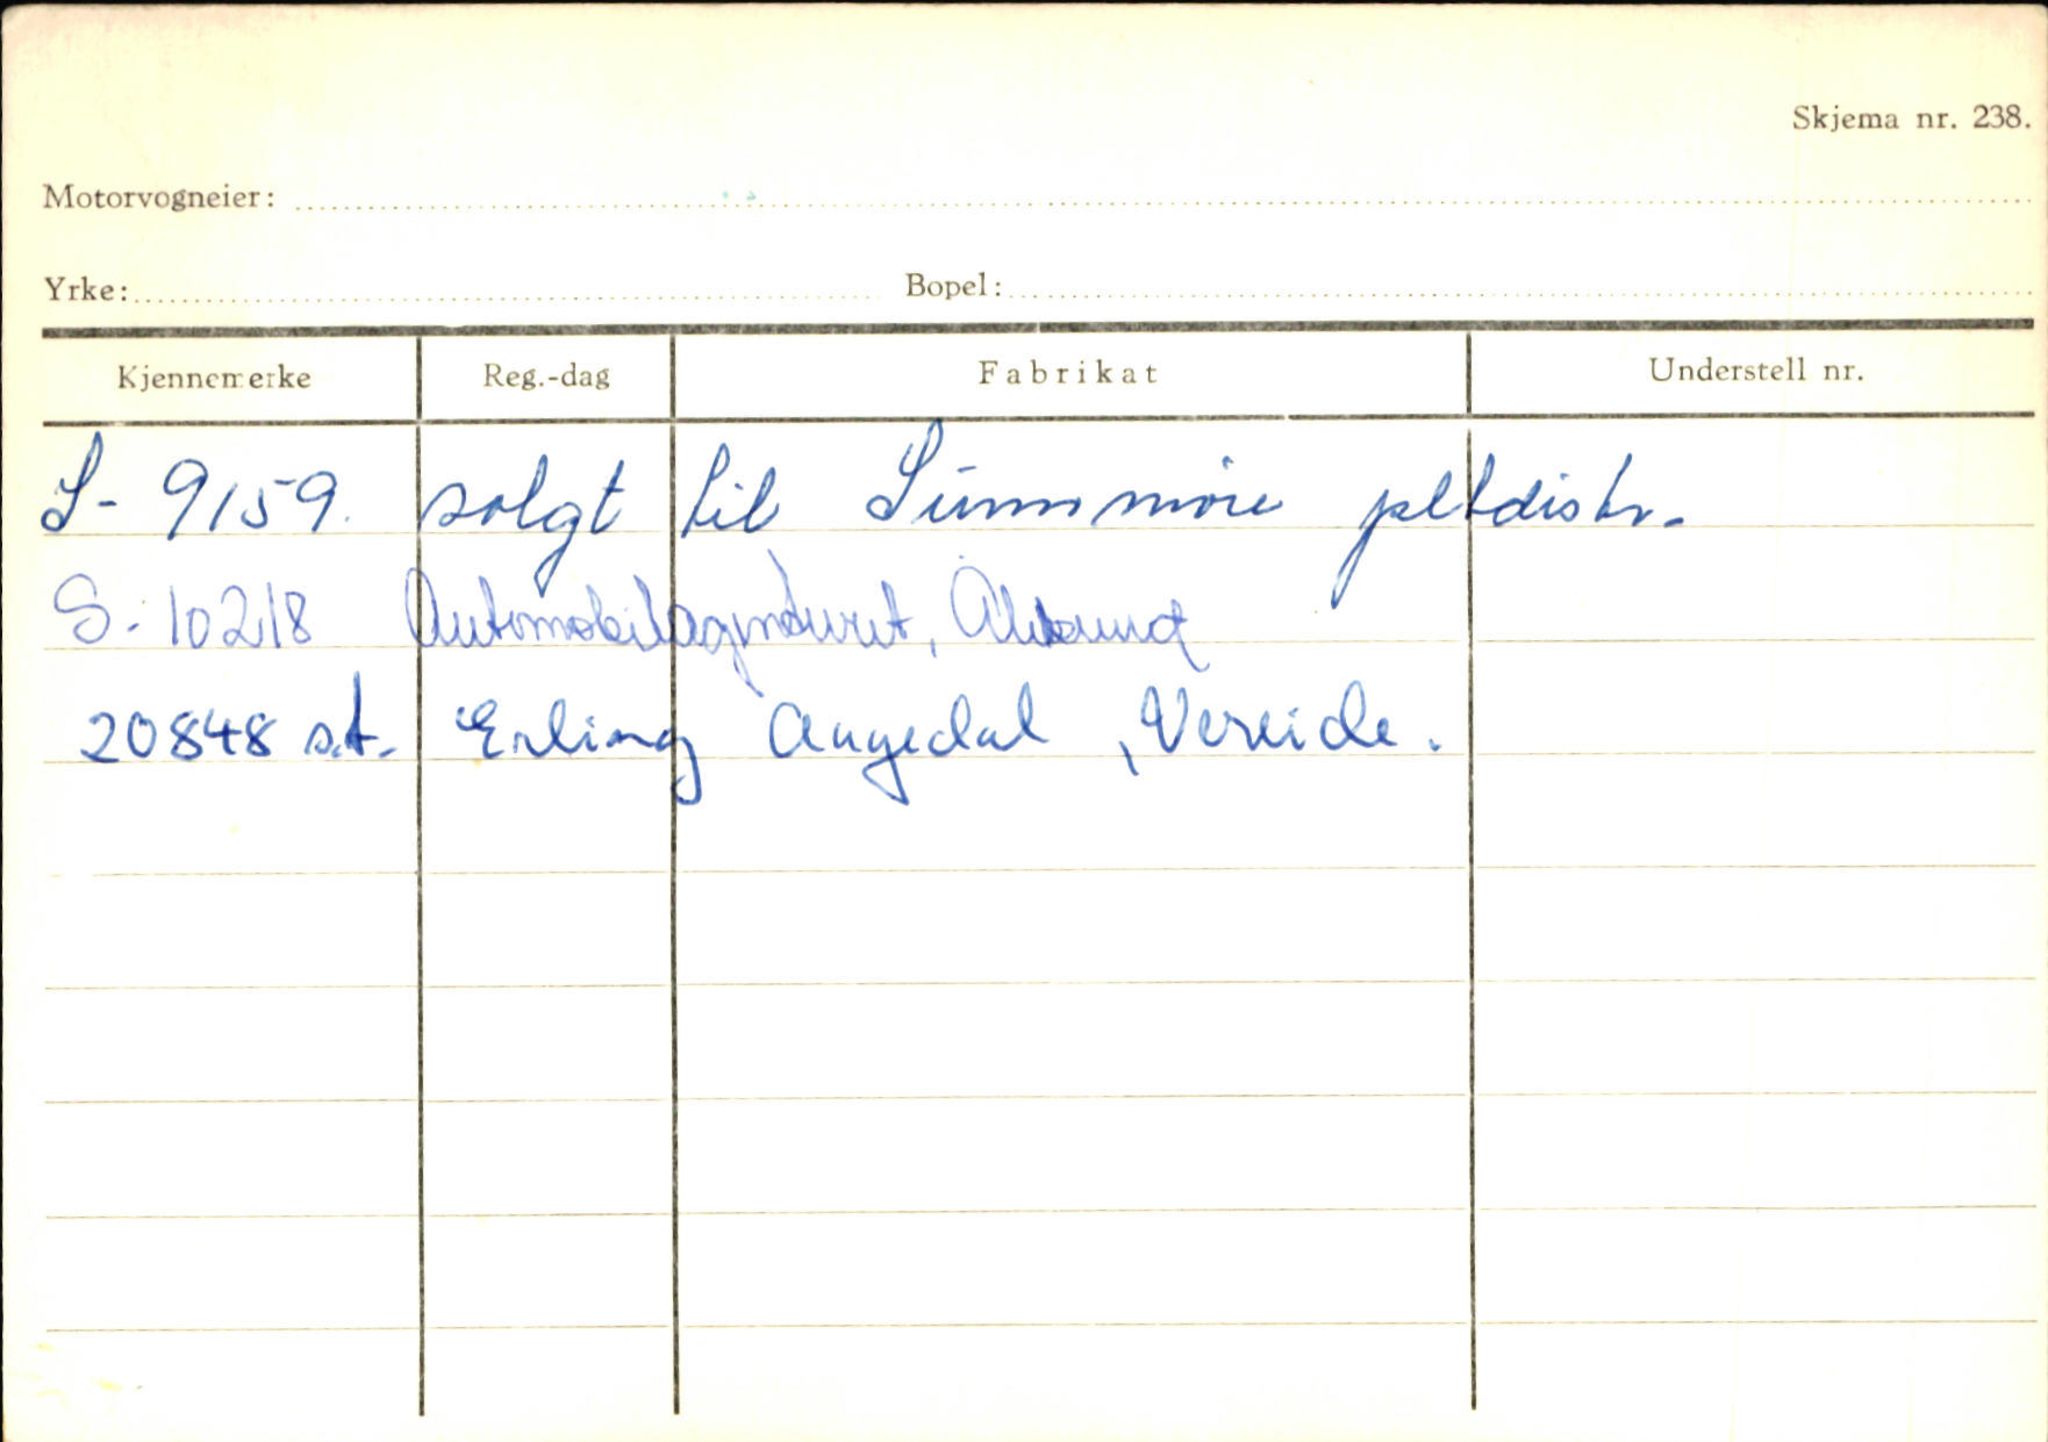 Skjema nr. 238.
Motorvogneier:
Yrke: Bopel:
Kjennemerke Reg.-dag Fabrikat Understell nr.
S- 9159. solgt til Sunnmöre pltdistr.
S. 10218 Automobilagenturet, Ålesund
20848 s.t. Erling Augedal, Vereide.